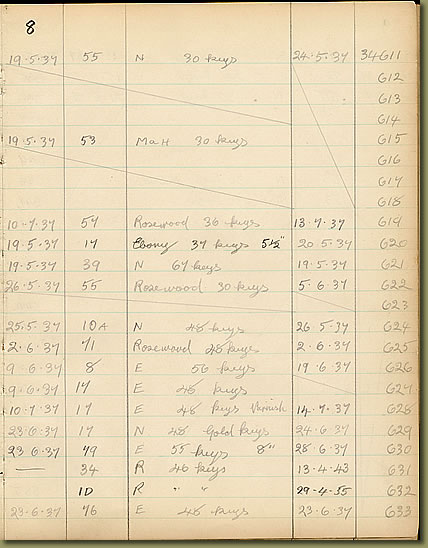 8
19.5.37 55 N 30 keys 24.5.37 34611
612
613
614
19.5.37 53 Mah 30 keys 615
616
617
618
10.7.37 57 Rosewood 36 keys 13.7.37 619
19.5.37 17 Ebony 37 keys 5½" 20 5.37 620
19.5.37 39 N 67 keys 19.5.37 621
26.5.37 55 Rosewood 30 keys 5.6.37 622
623
25.5.37 10A N 48 keys 26 5.37 624
2.6.37 71 Rosewood 48 keys 2.6.37 625
9.6.37 8 E 56 keys 19.6.37 626
9.6.37 17 E 48 keys 627
10.7.37 17 E 48 keys Varnish 14.7.37 628
23.6.37 17 N 48 Gold keys 24.6.37 629
23.6.37 79 E 55 keys 8" 28.6.37 630
— 34 R 46 keys 13-4-43 631
1D R " " 29-4-35 632
23.6.37 76 E 48 keys 23.6.37 633